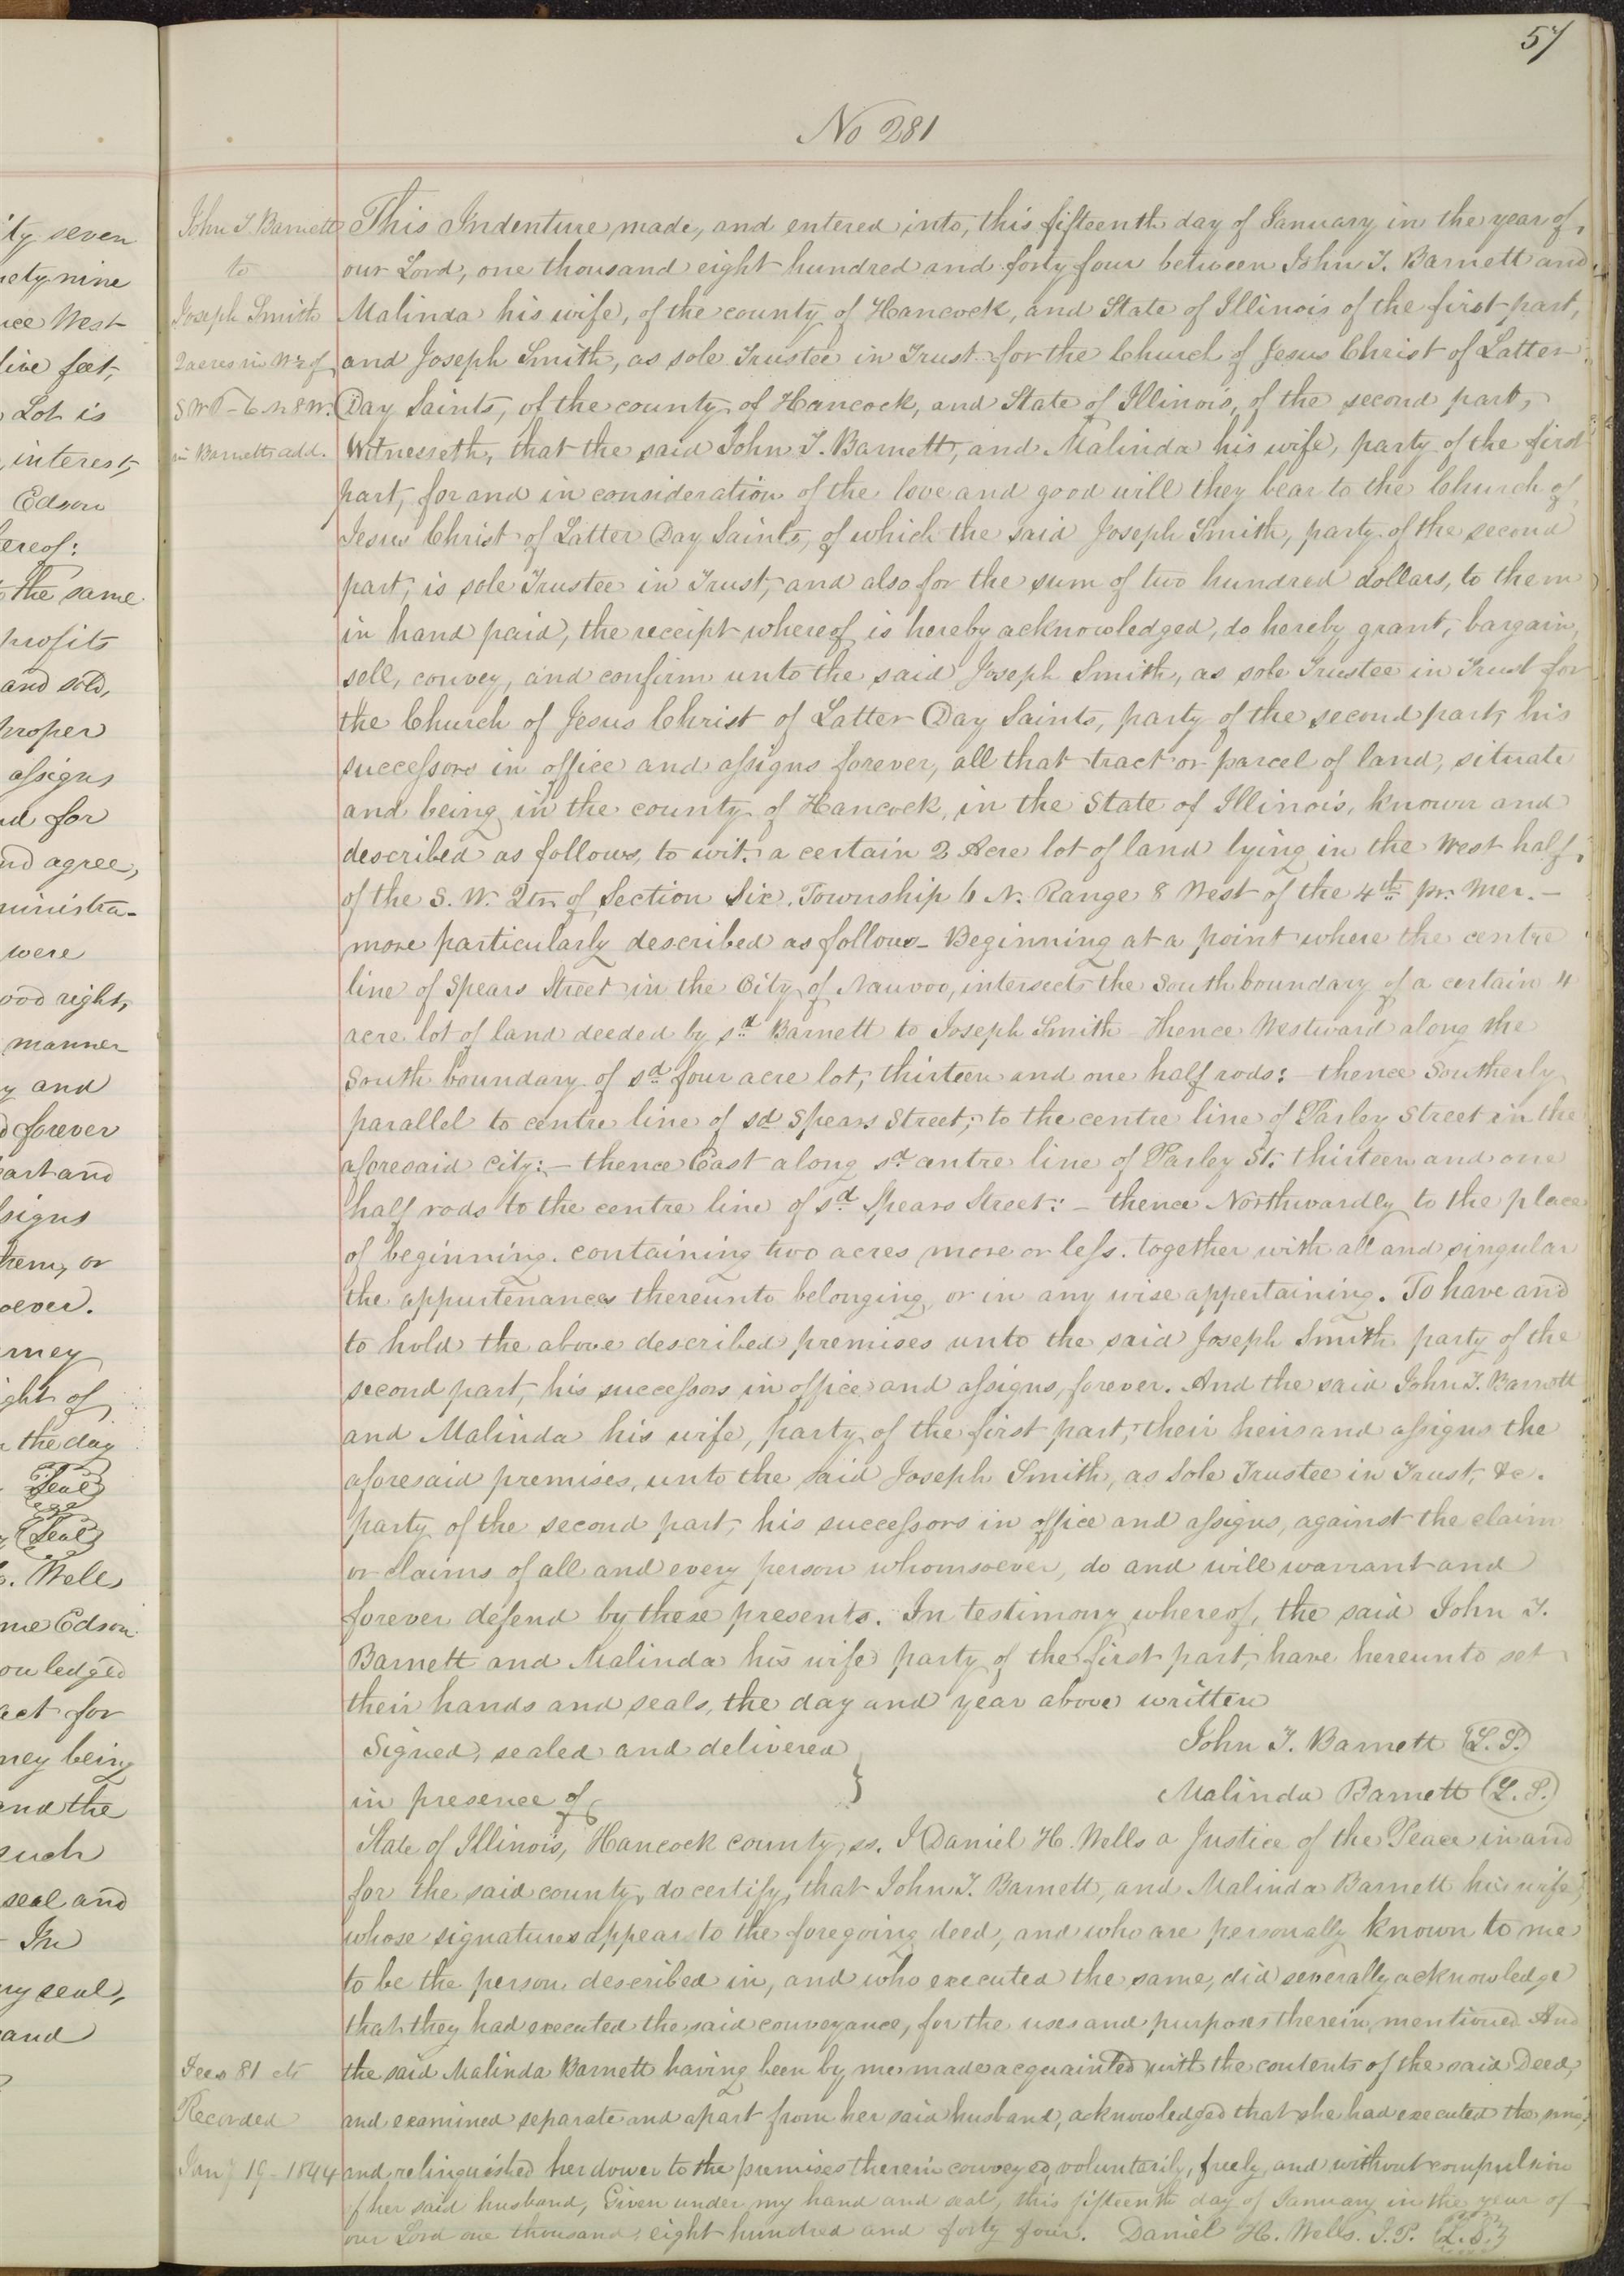 57
No 281
John T. Barnett
to
Joseph Smith
2 acres in W½ of
S W Q - 6 N 8 W.
in Barnetts add.
This Indenture made, and entered into, this fifteenth day of January in the year of
our Lord, one thousand eight hundred and forty four between John T. Barnett and
Malinda his wife, of the county of Hancock, and State of Illinois of the first part,
and Joseph Smith, as sole Trustee in Trust for the Church of Jesus Christ of Latter
Day Saints, of the county of Hancock, and State of Illinois, of the second part,
Witnesseth, that the said John T. Barnett, and Malinda his wife, party of the first
part, for and in consideration of the love and good will they bear to the Church of
Jesus Christ of Latter Day Saints, of which the said Joseph Smith, party of the second
part, is sole Trustee in Trust, and also for the sum of two hundred dollars, to them
in hand paid, the receipt whereof is hereby acknowledged, do hereby grant, bargain,
sell, convey, and confirm unto the said Joseph Smith, as sole Trustee in Trust for
the Church of Jesus Christ of Latter Day Saints, party of the second part, his
successors in office and assigns forever, all that tract or parcel of land, situate
and being in the county of Hancock, in the State of Illinois, known and
described as follows, to wit: a certain 2 Acre lot of land lying in the West half,
of the S. W. Qtr. of Section Six. Township 6 N. Range 8 West of the 4th pr. Mer. -
more particularly described as follows - Beginning at a point where the centre
line of Spears Street in the City of Nauvoo, intersects the South boundary of a certain 4
acre lot of land deeded by sd Barnett to Joseph Smith - thence Westward along the
South boundary of sd four acre lot, thirteen and one half rods: - thence Southerly
parallel to centre line of sd Spears Street; to the centre line of Parley Street in the
aforesaid city: - thence East along sd centre line of Parley St. thirteen and one
half rods to the centre line of sd Spears Street: - thence Northwardly to the place
of beginning. containing two acres more or less. together with all and singular
the appurtenances thereunto belonging, or in any wise appertaining. To have and
to hold the above described premises unto the said Joseph Smith party of the
second part, his successors in office and assigns, forever. And the said John T. Barnett
and Malinda his wife, party of the first part, their heirs and assigns the
aforesaid premises, unto the said Joseph Smith, as Sole Trustee in Trust, &c.
party of the second part, his successors in office and assigns, against the claim
or claims of all and every person whomsoever, do and will warrant and
forever defend by these presents. In testimony whereof, the said John T.
Barnett and Malinda his wife party of the first part, have hereunto set
their hands and seals, the day and year above written
Signed, sealed and delivered } John T. Barnett (L. S.)
in presence of Malinda Barnett (L. S.)
State of Illinois, Hancock county, ss. I Daniel H. Wells a Justice of the Peace in and
for the said county, do certify, that John T. Barnett, and Malinda Barnett his wife,
whose signatures appear to the foregoing deed, and who are personally known to me
to be the person described in, and who executed the same, did severally acknowledge
that they had executed the said conveyance, for the uses and purposes therein, mentioned. And
the said Malinda Barnett having been by me made acquainted with the contents of the said Deed,
and examined separate and apart from her said husband, acknowledged that she had executed the same,
and relinquished her dower to the premises therein conveyed, voluntarily, freely, and without compulsion
of her said husband, Given under my hand and seal, this fifteenth day of January in the year of
our Lord one thousand, eight hundred and forty four. Daniel H. Wells. J. P. (L. S.)
Fees 81 cts
Recorded
Jany 19 - 1844
ty seven
ety nine
West
feet,
Lot is
interest,
Edson
ereof:
the same
profits
and sold,
proper
assigns
for
agree,
ministra-
were
ood right,
manner
and
forever
part and
signs
them, or
oever.
rney
ght of
the day
Seal
Seal
Wells
me Edson
owledged
act for
ney being
and the
such
seal and
In
my seal,
and